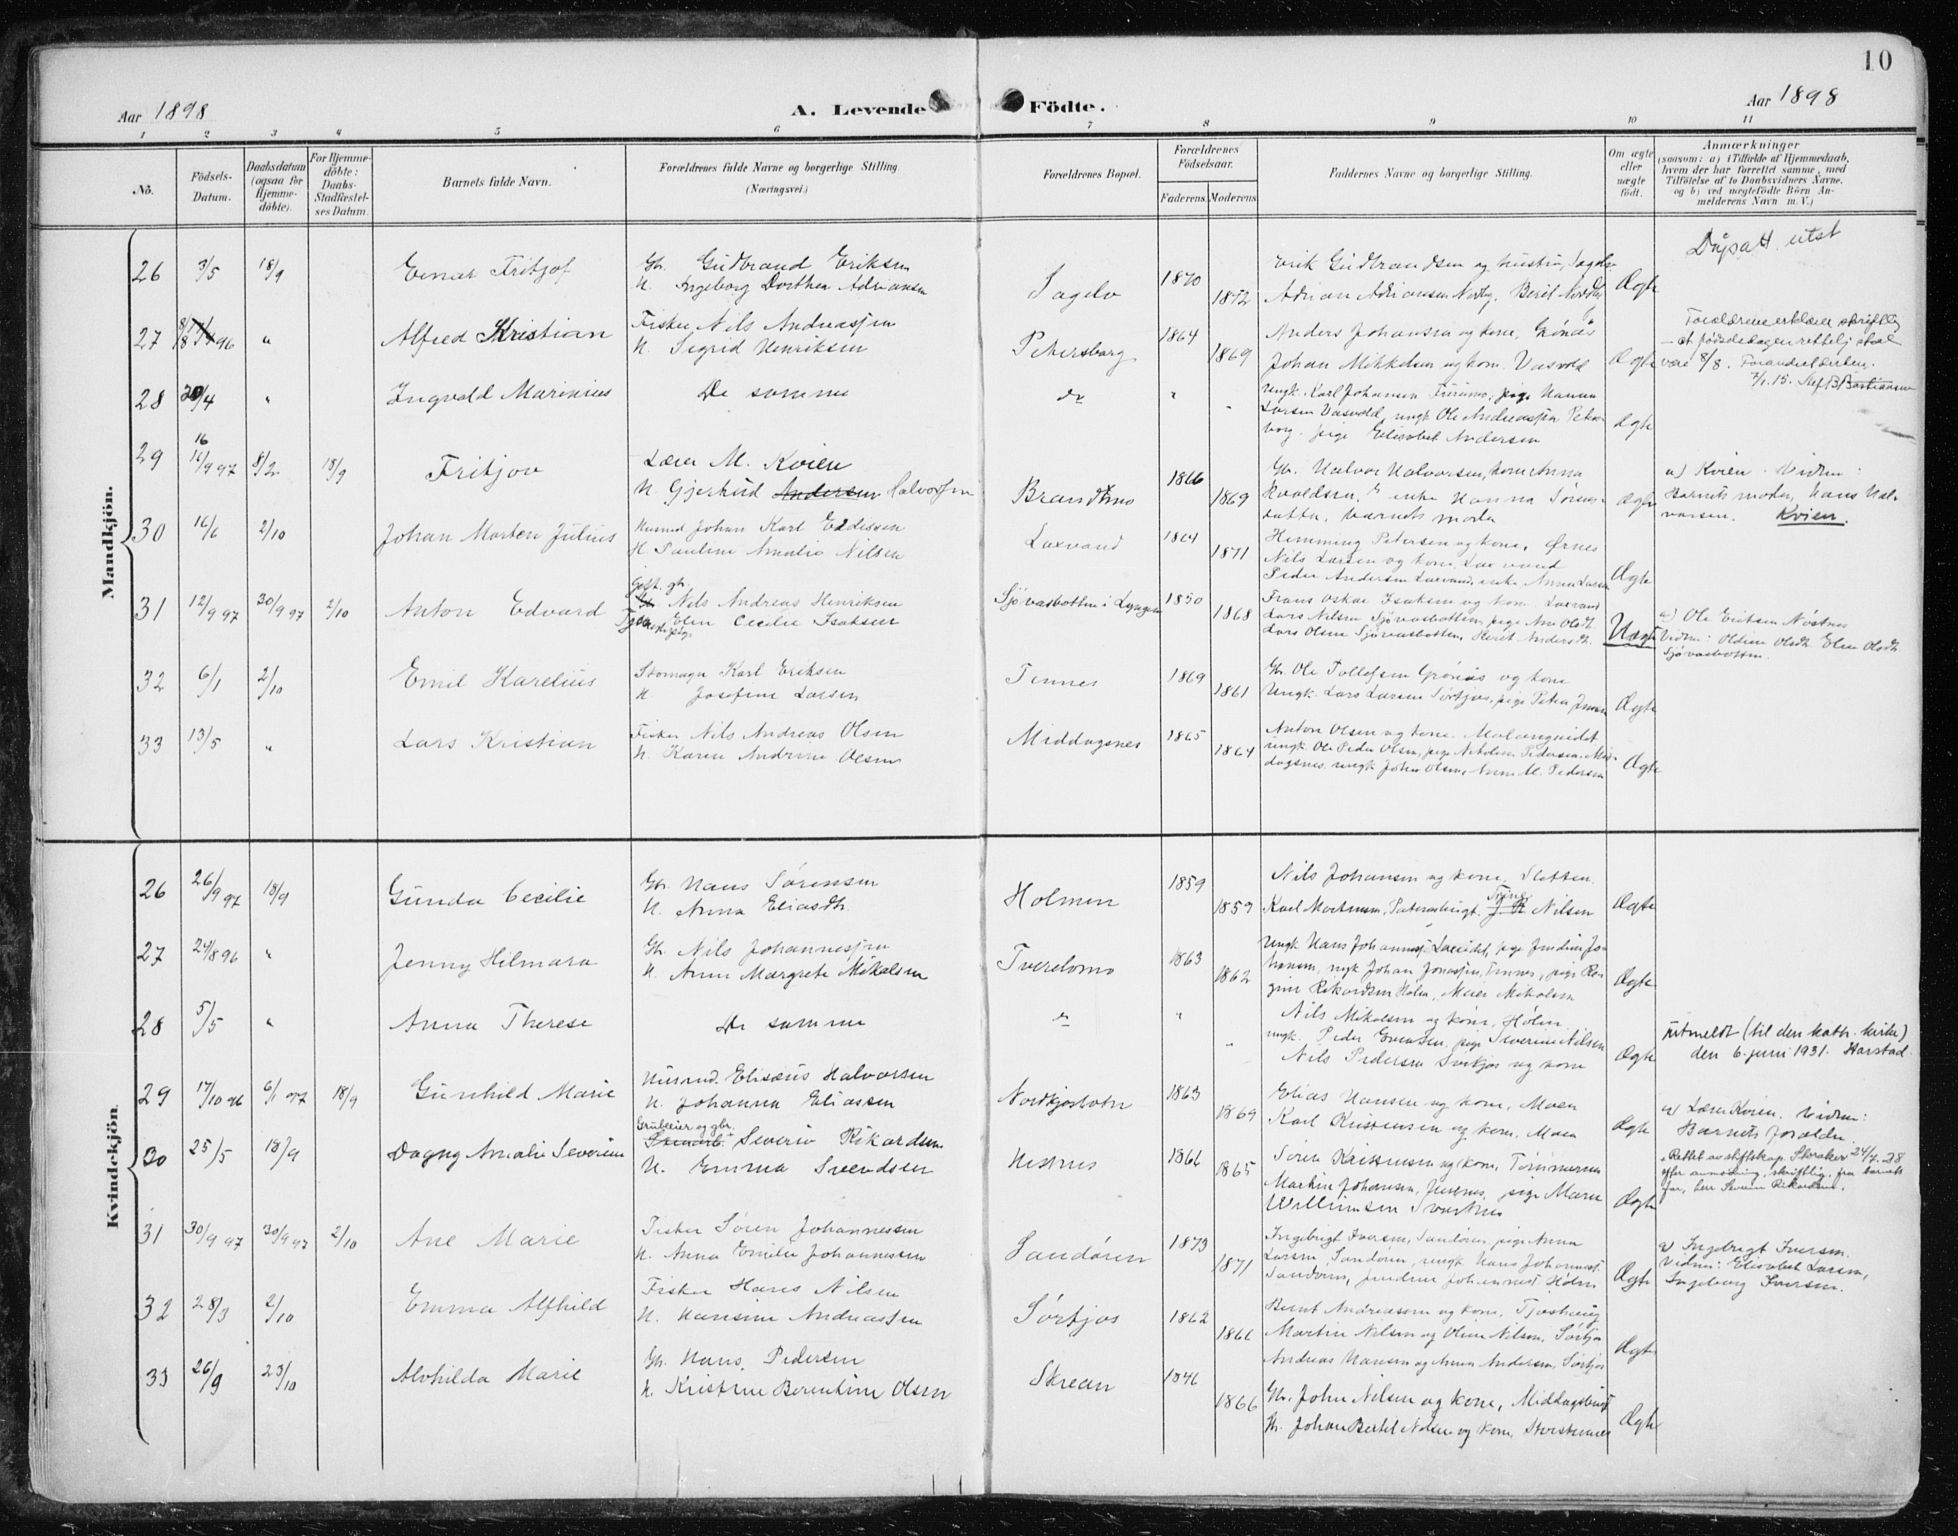 10
Aar 1898
A. Levende Födte.
Aar 1898
1 2 3 4 5 6 7 8 9 10 11
No.
Födsels-Datum.
Daabsdatum (ogsaa for Hjemme-döbte).
For Hjemme-döbte: Daabs-Stadfæstel-ses Datum.
Barnets fulde Navn.
Forældrenes fulde Navne og borgerlige Stilling (Næringsvei.)
Forældrenes Bopæl.
Forældrenes Födselsaar.
Faderens. Moderens.
Faddernes Navne og borgerlige Stilling.
Om ægte eller uægte födt.
Anmærkninger
(saasom: a) i Tilfælde af Hjemmedaab,
hvem der har forrettet samme, med
Tilföielse af to Daabsvidners Navne,
og b) ved uægtefödte Börn An-
melderens Navn m. V.)
Mandkjön.
26 3/5 18/9 Einar Fritjof
Gbr. Gudbrand Eriksen
H. Ingeborg Dorthea Adriansen
Sagelv 1870 1872
Erik Gudbrandsen og hustru,
Adrian Adriansen Nordby, Berit
Ægte
Dåpsatt. utst
27 8/8 96 " Alfred Kristian
Fisker Nils Andreassen
H. Sigrid Henriksen
Petersborg 1864 1869
Anders Johansen og kone, Grønås
Johan Mikkelsen og kone, Vasvold
Ægte
Forældrene erklærer skriftlig
at fødselsdagen rettelig skal
være 8/8. Forandret
7/1. 15.
28 30/4 " Ingvald Marinius
De samme
do " "
ungk. Karl Johansen, pige Hanna
Larsen Vasvold, ungk. Ole Andreassen Peters-
borg, pige Elisabet Andersen
Ægte
29 16/9 97 8/2 18/9 Fritjov
Lærer M. Kvien
H. Gjertrud Andersen Halvorsen
Brandmo 1866 1869
Gbr. Halvor Halvorsen, kone Anna
enke Hanna
Barnets moder
Ægte
a) Kvien. Vidner:
Barnets moder, Hans Hal-
vorsen. Kvien.
30 16/6 2/10 Johan Morten Julius
Husmd Johan Karl Eddissen
H. Pauline Amalia Nilsen
Laxvand 1864 1871
Hemming Petersen og kone, Ørnes
Nils Larsen og kone, Laxvand
Peder Andersen Laxvand, enke Anna Larsen
Ægte
31 12/9 97 30/9 97 2/10 Anton Edvard
Gift. gbr.
Nils Andreas Henriksen
Elen Cecilie Isaksen
Sjövasbotten i Lyngen 1850 1868
Frans Oskar Isaksen og kone Laxvand
Lars Nilsen Sjövasbotten, pige Ane Olsdt.
Lars Olsen Sjövasbotten, Berit Andersdt.
Uægte
a) Ole Eriksen Nøstnes
Vidner: Oldine Olsdt. Elen Olsdt.
Sjövasbotten.
32 6/1 2/10 Emil Karelius
Skomager Karl Eriksen
H. Josefine Larsen
Tennes 1869 1861
Gbr. Ole Tollefsen Grönås og kone
Ungk. Lars Larsen Sørkjos, pige Petra
Ægte
33 13/5 " Lars Kristian
Fisker Nils Andreas Olsen
H. Karen Andrine Olsen
Middagsnes 1865 1864
Anton Olsen og kone, Malangseidet
ungk. Ole Peder Olsen, pige Nikoline Pedersen, Mid-
dagsnes. ungk. John Olsen, Anne M. Pedersen
Ægte
Kvindekjön.
26 26/9 97 18/9 Gunda Cecilie
Gbr. Hans Sörensen
H. Anna Eliasdt.
Holmen 1859 1859
Nils Johansen og kone, Sletten.
Karl Mortensen, Nilsen
Ægte
27 24/8 96 " Jenny Hilmara
Gbr. Nils Johannessen
H. Anne Margrete Mikalsen
Tverelvmo 1863 1862
ungk. Hans Johannessen Laxeidet, pige Jo-
hansen, ungk. Johan Jonassen, Tennes, pige Re-
gine Rikardsen Holm, Meier Mikalsen
Ægte
28 5/5 " Anna Therese
De samme
do " "
Nils Mikalsen og kone, Holm.
ungk. Peder Evensen, pige Severine Nilsen
Nils Pedersen og kone
Ægte
utmeldt (til den kath. kirke)
den 6. juni 1931. Harstad.
29 17/10 96 6/1 97 18/9 Gunhild Marie
Husmd. Elisæus Halvorsen
H. Johanna Eliassen
Nordkjosbotn 1863 1869
Elias Hansen og kone, Moen
Karl Kristensen og kone, Moen
Ægte
a) Lærer Kvien. Vidner:
Barnets forældre.
30 25/5 18/9 Dagny Amalie Severine
Grubeeier og gbr.
Severin Rikardsen
H. Emma Svendsen
Hestnes 1866 1865
Sören Kristensen og kone, Tömmernes
Martin Johansen, pige Maren
Willumsen Svartnes
Ægte
Rettet av stiftskap. Skraker 24/7. 28
efter anmodning, skriftlig, fra barnets
far, herr Severin Rikardsen.
31 30/9 97 30/9 97 2/10 Ane Marie
Fisker Sören Johannessen
H. Anna Emilie Johannessen
Sandören 1873 1871
Ingebrigt Iversen, Sandören, pige Anna
Larsen, Sandören, ungk. Hans Johannes.
Sandören, Johannes. Holm
Ægte
a) Ingebrigt Iversen.
Vidner: Elisabet Larsen,
Ingeborg Iversen.
32 28/3 2/10 Emma Alfhild
Fisker Hans Nilsen
H. Hansine Andreassen
Sörkjos 1862 1866
Bernt Andreassen og kone,
Martin Nilsen og Oline Nilsen, Sörkjos
Andreas Hansen og Anna Andersen, Sörkjos
Ægte
33 26/9 23/10 Alvhilda Marie
Gbr. Hans Pedersen
H. Kristine Berentine Olsen
Skrean 1846 1866
Gbr. John Nilsen og kone, Middagsbugt
Gbr. Johan Bertel Nilsen og kone, Storsteinnes
Ægte